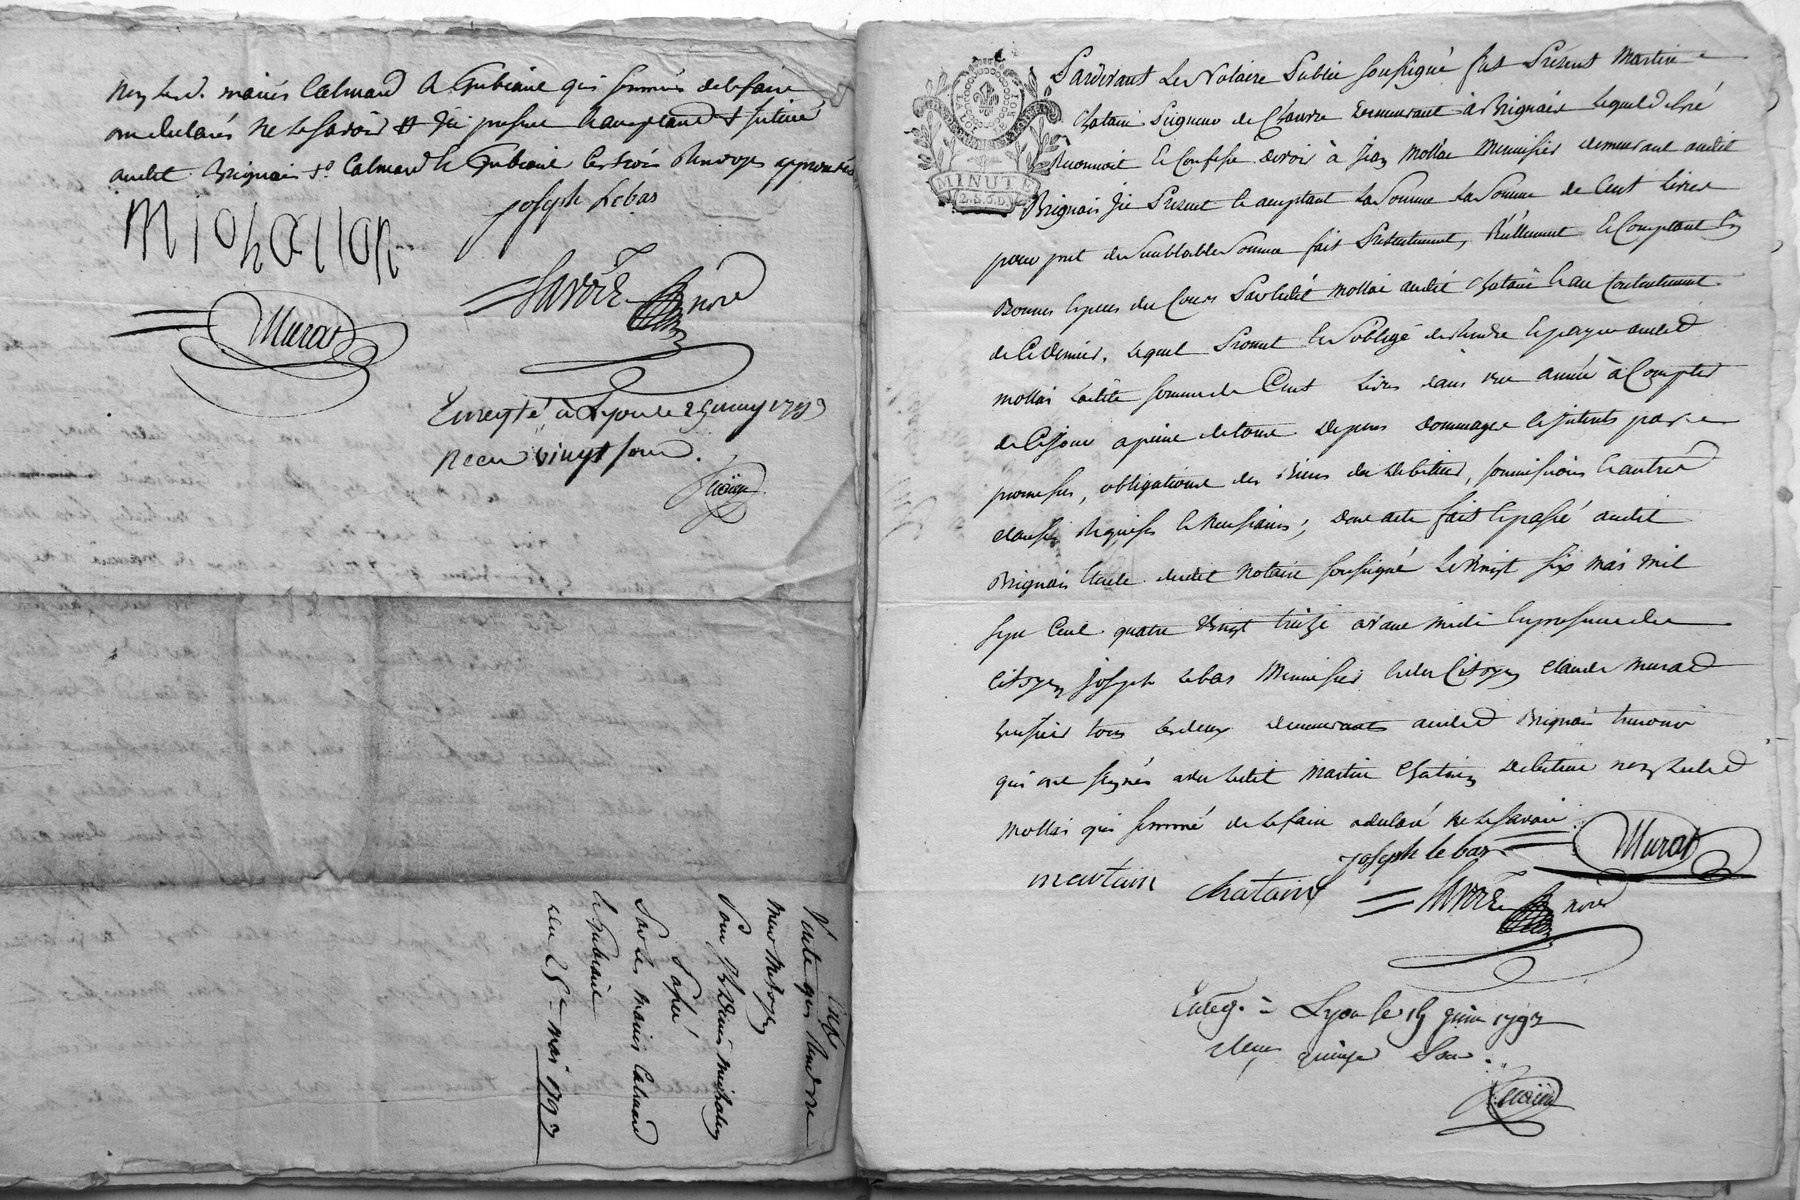 non led. mariés Calmard & Gubiane qui sommés de le faire
ont déclarés ne le savoir
audit Brignais Calmard & Gubiane ces trois Renvoys approuvés
Michallon
Joseph Lebas
Murat
Savoie nore
Enregté à Lyon le juin 1793
Reçu vingt sous.
Vente
Sous
passé
Par les mariés Calmard
& Gubiane
du 25e mai 1793
LA LOI LE ROI
MINUTE
2.S.6.D.
Pardevant Le Notaire Public soussigné fut Présent Martin
Chatain demeurant à Brignais Lequel de gré
Reconnoit & Confesse devoir à Jean Mollai Menuisier demeurant audit
Brignais ici Présent & acceptant La Somme La Somme de Cent Livres
pour pret de Semblable Somme fait Présentement, Réellement & Comptant En
Bonnes Especes du Cours Par Ledit Mollai audit Chatain & au Contentement
de Ce dernier, Lequel Promet & S'oblige de Rendre & payer audit
Mollai ladite Somme de Cent Livres dans une année à Compter
de Ce jour a peine de tous Depens Dommages & Interets par
promesses, obligations des Biens du Debiteur, Soumissions & autres
Clauses Requises & Necessaires; Dont acte fait & passé audit
Brignais Etude dudit Notaire soussigné Le Vingt six mai mil
Sept Cent quatre Vingt treize avant midi En presence du
Citoyen Joseph Lebas Menuisier & du Citoyen Claude Murat
huissier tous Les deux demeurants audit Brignais temoins
qui ont Signés avec Ledit Martin Chatain Debiteur non Ledit
Mollai qui Sommé de Le faire a déclaré ne Le Savoir.
Joseph Lebas
Murat
martain Chatain
Savoie nore
Enreg. à Lyon le 15 juin 1793
Reçu quinze Sous.